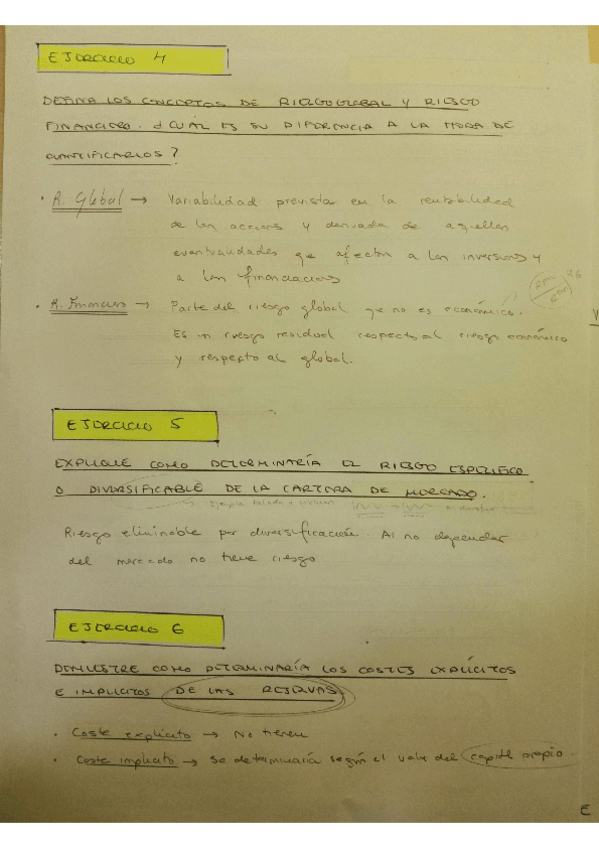 EJERCICIO 4
DEFINA LOS CONCEPTOS DE RIESGO GLOBAL Y RIESGO
FINANCIERO. ¿CUÁL ES SU DIFERENCIA A LA HORA DE
CUANTIFICARLOS?
· R. Global → Variabilidad prevista en la rentabilidad
de las acciones y derivada de aquellas
eventualidades que afectan a las inversiones y
a las financiaciones
· R. Financiero → Parte del riesgo global que no es económico.
Es un riesgo residual respecto al riesgo económico
y respecto al global.
EJERCICIO 5
EXPLIQUE COMO DETERMINARÍA EL RIESGO ESPECÍFICO
O DIVERSIFICABLE DE LA CARTERA DE MERCADO.
Riesgo eliminable por diversificación. Al no depender
del mercado no tiene riesgo
EJERCICIO 6
DEMUESTRE COMO DETERMINARÍA LOS COSTES EXPLÍCITOS
E IMPLICITOS DE LAS RESERVAS.
· Coste explícito → No tienen
· Coste implícito → Se determinaría según el valor del capital propio.
E